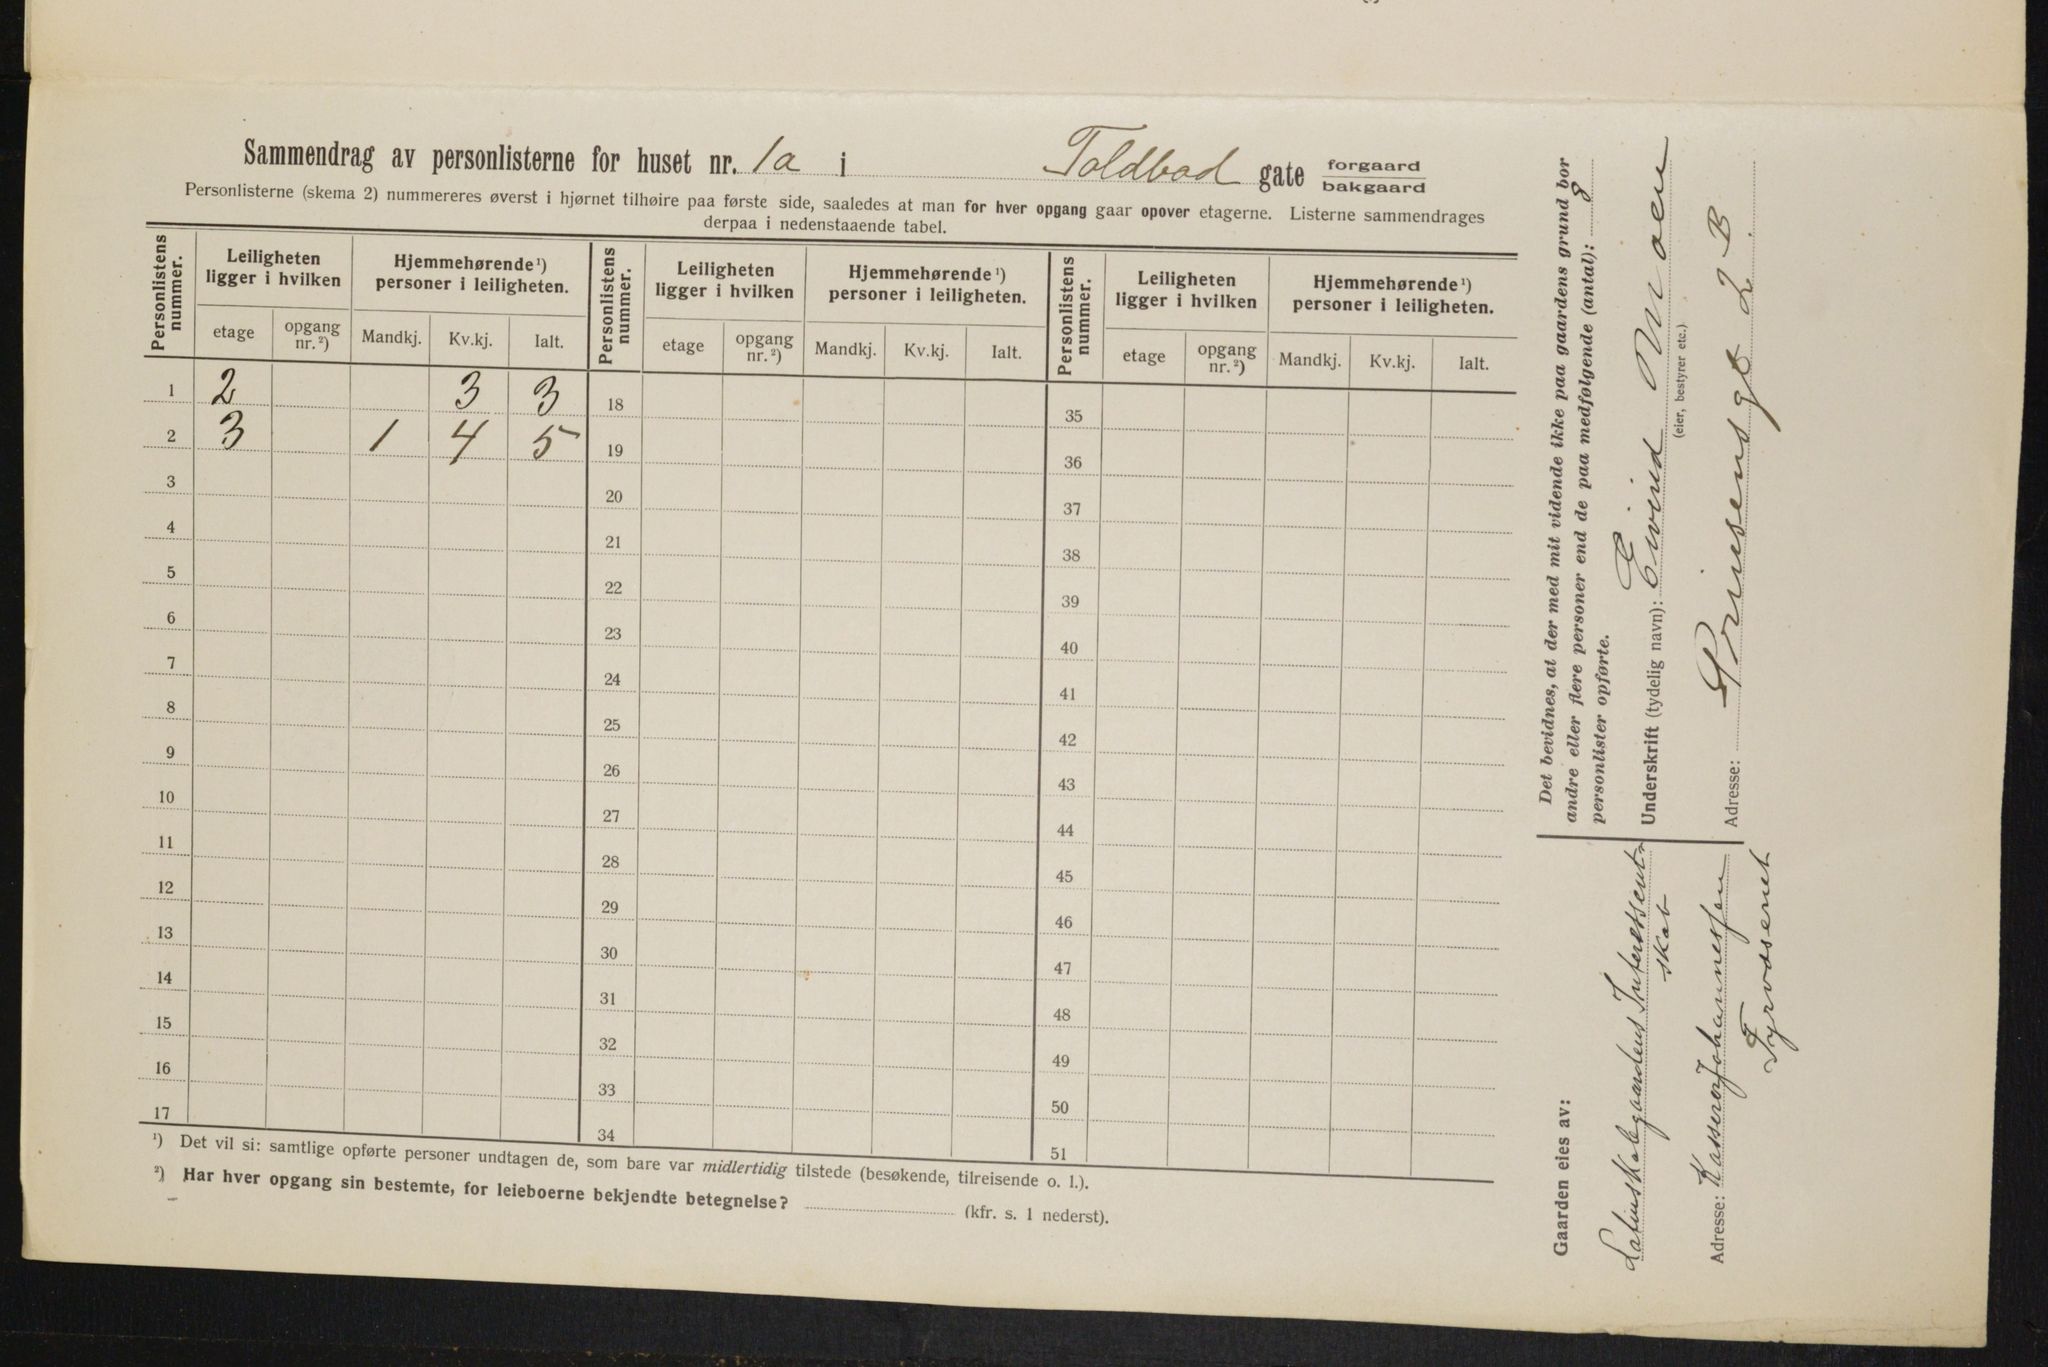 Sammendrag av personlisterne for huset nr. 1a i Toldbod gate forgaard bakgaard
Personlisterne (skema 2) nummereres øverst i hjørnet tilhøire paa første side, saaledes at man for hver opgang gaar opover etagerne. Listerne sammendrages
derpaa i nedenstaaende tabel.
Personlistens nummer. Leiligheten ligger i hvilken Hjemmehørende ¹) personer i leiligheten. Personlistens nummer. Leiligheten ligger i hvilken Hjemmehørende ¹) personer i leiligheten. Personlistens nummer. Leiligheten ligger i hvilken Hjemmehørende ¹) personer i leiligheten.
etage opgang nr. ²) Mandkj. Kv.kj. Ialt. etage opgang nr. ²) Mandkj. Kv.kj. Ialt. etage opgang nr. ²) Mandkj. Kv.kj. Ialt.
1 2 3 3 18 35
2 3 1 4 5 19 36
3 20 37
4 21 38
5 22 39
6 23 40
7 24 41
8 25 42
9 26 43
10 27 44
11 28 45
12 29 46
13 30 47
14 31 48
15 32 49
16 33 50
17 34 51
¹) Det vil si: samtlige opførte personer undtagen de, som bare var midlertidig tilstede (besøkende, tilreisende o. l.).
²) Har hver opgang sin bestemte, for leieboerne bekjendte betegnelse? (kfr. s. 1 nederst).
Det bevidnes, at der med mit vidende ikke paa gaardens grund bor
andre eller flere personer end de paa medfølgende (antal): 8
personlister opførte.
Underskrift (tydelig navn): Eivind Moen
(eier, bestyrer etc.)
Adresse: Prinsensgt 2 B.
Gaarden eies av:
Latinskolegaardens Interessent-
skab
Adresse: Kasserer Johannessen
Tyvosenet